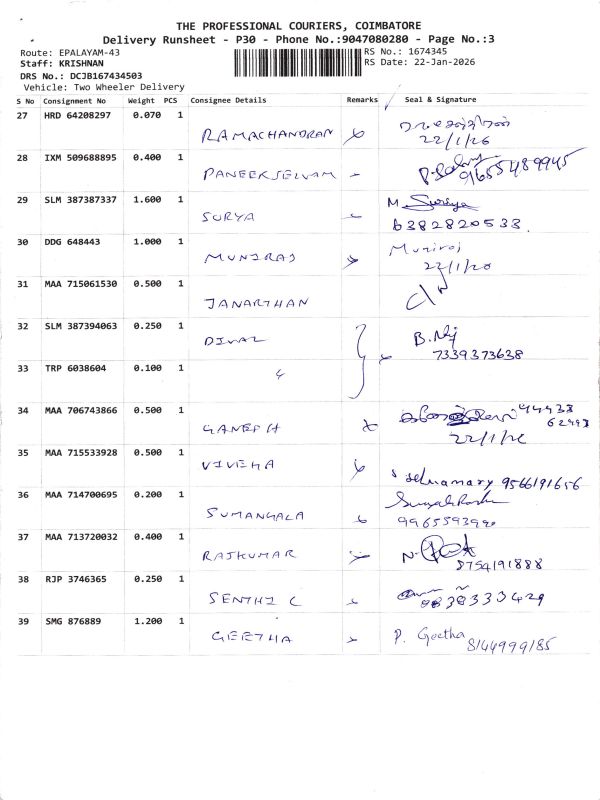 THE PROFESSIONAL COURIERS, COIMBATORE
Delivery Runsheet - P30 - Phone No.:9047080280 - Page No.:3
Route: EPALAYAM-43 RS No.: 1674345
Staff: KRISHNAN RS Date: 22-Jan-2026
DRS No.: DCJB167434503
Vehicle: Two Wheeler Delivery
S No Consignment No Weight PCS Consignee Details Remarks Seal & Signature
27 HRD 64208297 0.070 1
RAMACHANDRAN
22/1/26
28 IXM 509688895 0.400 1
PANEERSELVAM 9655489945
29 SLM 387387337 1.600 1
M Surya
SURYA 6382820533
30 DDG 648443 1.000 1
Muniraj
MUNIRAJ
31 MAA 715061530 0.500 1
JANARTHAN
32 SLM 387394063 0.250 1
7339373638
33 TRP 6038604 0.100 1
34 MAA 706743866 0.500 1
GANESH
35 MAA 715533928 0.500 1
selvamary 9566191656
36 MAA 714700695 0.200 1
SUMANGALA
37 MAA 713720032 0.400 1
RAJKUMAR
8754191888
38 RJP 3746365 0.250 1
39 SMG 876889 1.200 1
GEETHA P. Geetha 8144999185